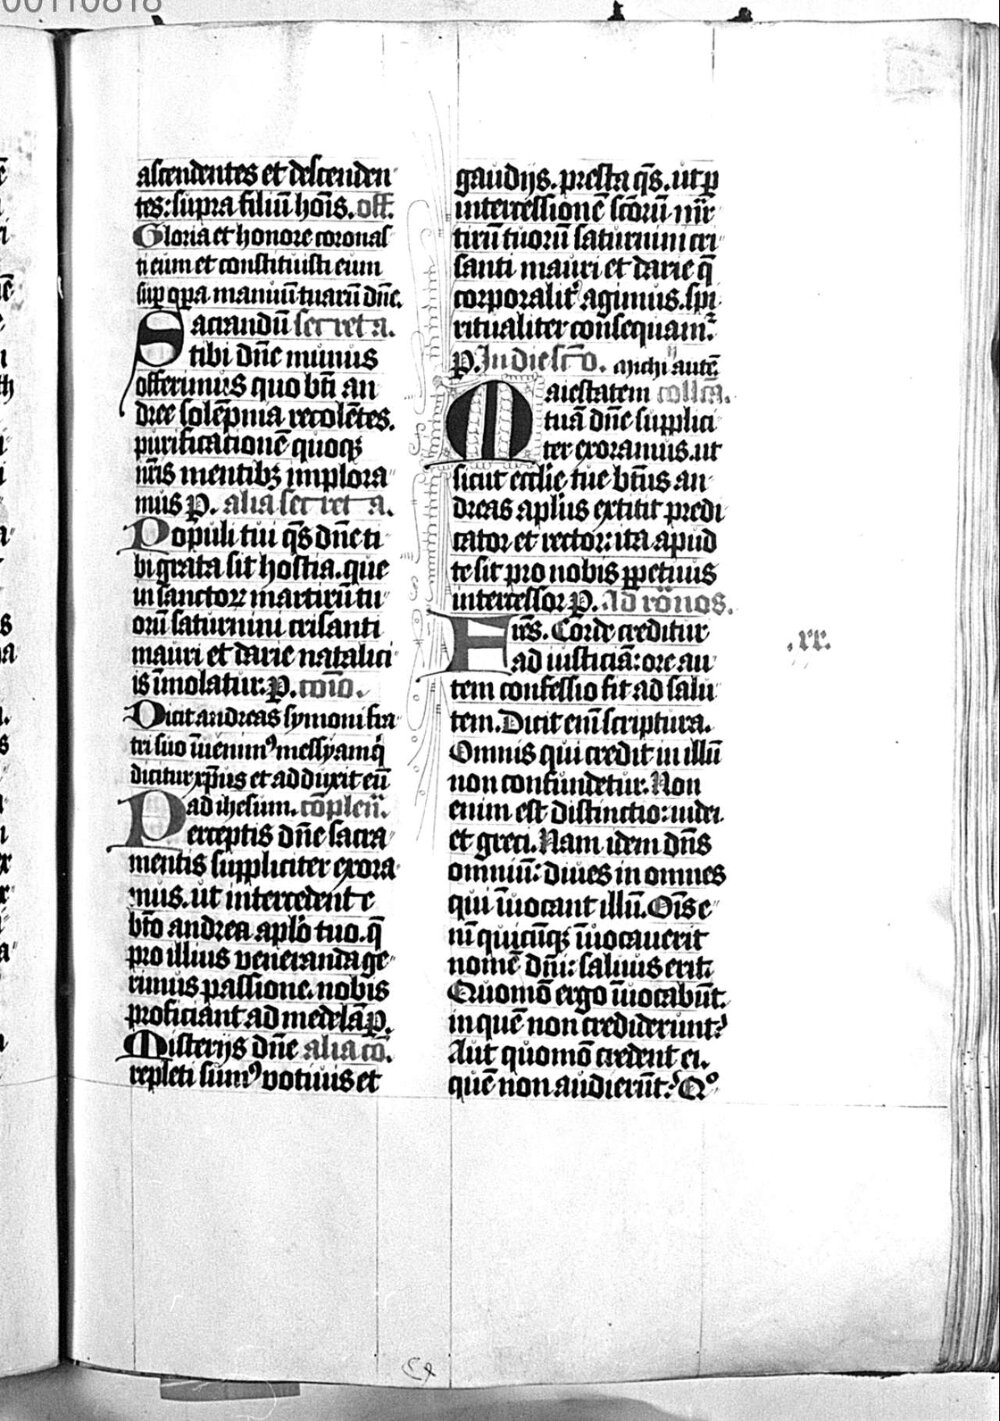 00110818
ascendentes et descenden
tes: supra filiū hoīs. off.
Gloria et honore coronas
ti eum et constituisti eum
sup oꝑa manuū tuarū dn̄e.
Sacrandū secreta.
tibi dn̄e munus
offerimus quo bt̄i an
dree solēpnia recolētes.
purificationē quoqꝫ
nr̄is mentibꝫ implora
mus P. alia secreta.
Populi tui qs̄ dn̄e ti
bi grata sit hostia. que
in sanctoꝝ martirū tu
orū saturnini crisanti
mauri et darie natalici
is īmolatur. P. cōio.
Dicit andreas symoni fra
tri suo īuenimꝰ messyam q̄
dicitur xp̄us et adduxit eū
ad ihesum. cōplen̄.
Perceptis dn̄e sacra
mentis suppliciter exora
mus. ut intercedente
bt̄o andrea aplō tuo. q̄
pro illius veneranda ge
rimus passione. nobis
proficiant ad medelā P.
Misterijs dn̄e alia cō.
repleti sumꝰ votiuis et
gaudijs. presta qs̄. ut ꝑ
intercessionē scōrū mr̄
tirū tuorū saturnini cri
santi mauri et darie q̄
corporalit᷑ agimus. spi
ritualiter consequam᷑.
P. In die scō. michi autē
Maiestatem collcā.
tuā dn̄e supplici
ter exoramus. ut
sicut eccl̄ie tue bt̄us an
dreas apl̄us extitit predi
cator et rector: ita apud
te sit pro nobis ꝑpetuus
intercessor P. Ad rōnos.
Fr̄es. Corde creditur
ad iusticiā: ore au
.xx.
tem confessio fit ad salu
tem. Dicit enī scriptura.
Omnis qui credit in illū
non confundetur. Non
enim est distinctio: iudei
et greci. Nam idem dn̄s
omniū: diues in omnes
qui īuocant illū. Oīs e
nī quicūqꝫ īuocauerit
nomē dn̄i: saluus erit.
Quomō ergo īuocabūt.
in quē non crediderunt?
Aut quomō credent ei.
quē non audierūt? Qꝰ